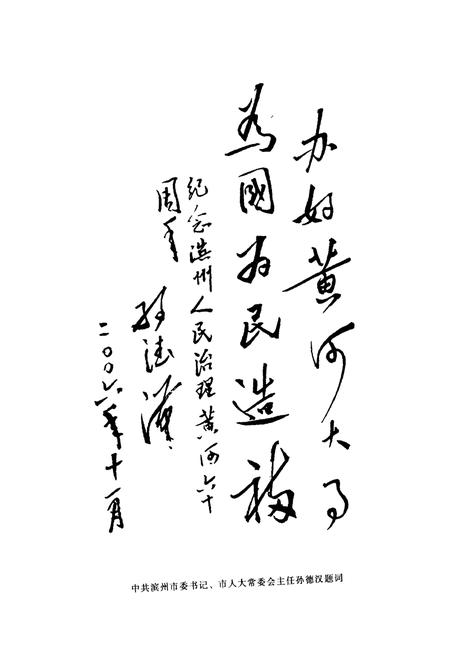 办好黄河大事
为國为民造福
纪念滨州人民治理黄河六十
周年
孙德汉
二〇〇六年十一月
中共滨州市委书记、市人大常委会主任孙德汉题词